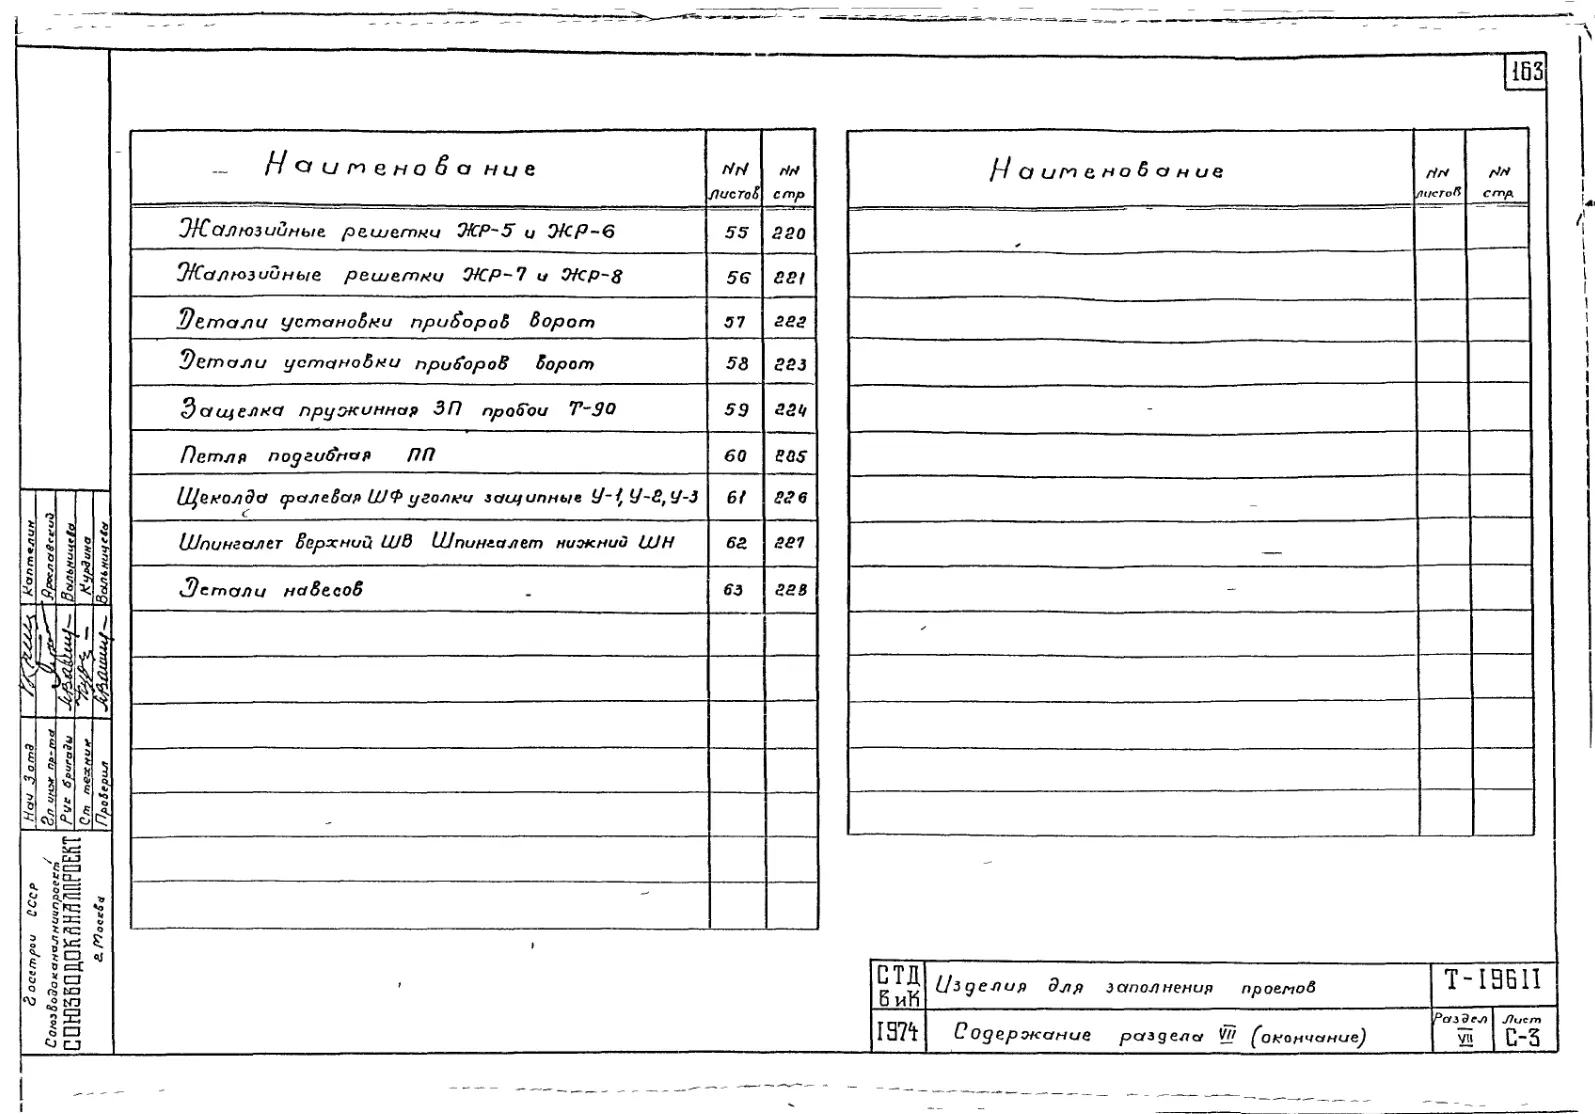 163
Наименование NN листов NN стр
Жалюзийные решетки ЖР-5 и ЖР-6 55 220
Жалюзийные решетки ЖР-7 и ЖР-8 56 221
Детали установки приборов ворот 57 222
Детали установки приборов ворот 58 223
Защелка пружинная ЗП пробои Т-90 59 224
Петля подгибная ПП 60 225
Щеколда фалевая ШФ уголки защипные У-1, У-2, У-3 61 226
Шпингалет верхний ШВ Шпингалет нижний ШН 62 227
Детали навесов 63 228
Наименование NN листов NN стр.
Нач Зотд Каптелин
Гл инж пр-та Ярославский
Рук бригады Вальницева
Ст техник Курдина
Проверил Вальницева
Госстрой СССР
Союзводоканалниипроект
СОЮЗВОДОКАНАЛПРОЕКТ
г. Москва
СТД ВиК Изделия для заполнения проемов Т-196II
1974 Содержание раздела VII (окончание) Раздел VII Лист С-3